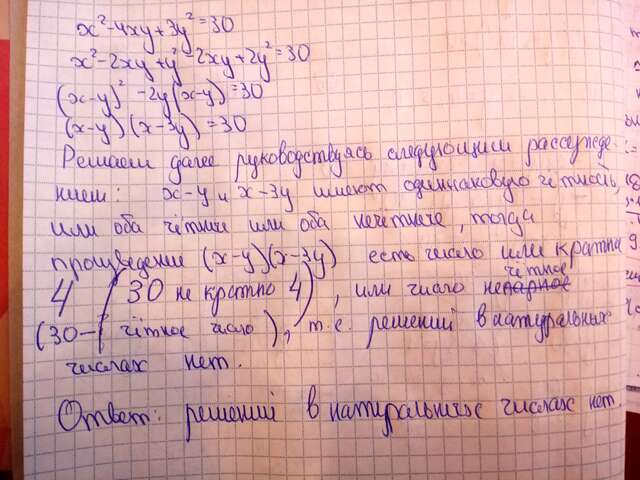 x² 4xy + 3y² = 30
x² - 2xy + y² 2xy + 2y² = 30
(x-y)² - 2y(x-y) = 30
(x-y)(x-3y) = 30
Решаем далее руководствуясь следующим рассужде
нием: x-y и x-3y имеют одинаковую чётность,
или оба чётные или оба нечётные, тогда
произведение (x-y)(x-3y) есть число или кратна
4 (30 не кратно 4), или число чётное
(30 - чётное число), т.е. решений в натуральных
числах нет.
Ответ: решений в натуральных числах нет